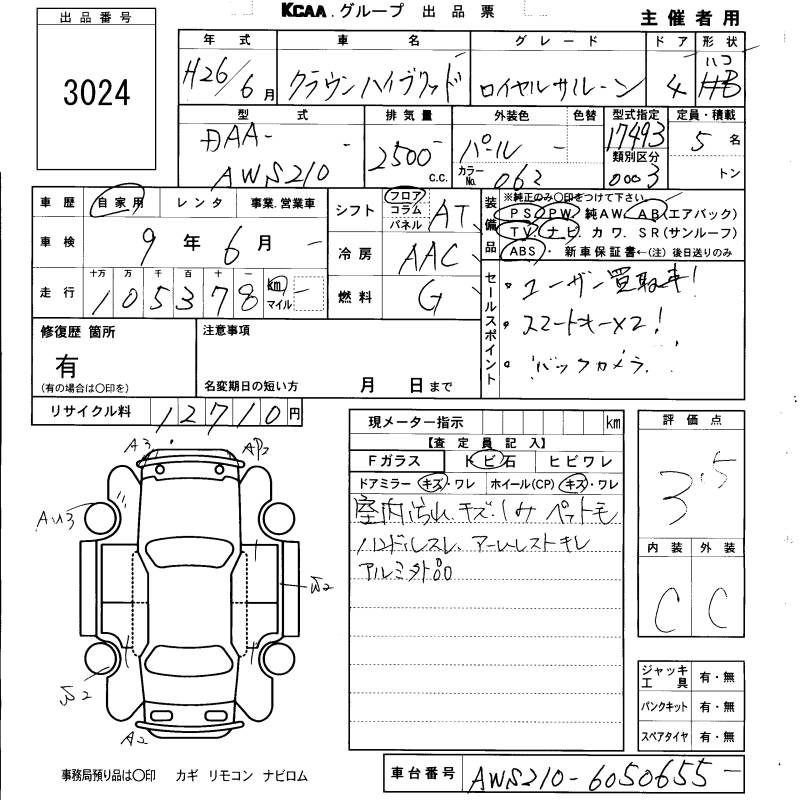 KCAA.グループ 出品票
主催者用
出品番号
3024
年式 車名 グレード ドア 形状
H26/6月 クラウンハイブリッド ロイヤルサルーン 4 ハコ HB
型式 排気量 外装色 色替 型式指定 定員・積載
DAA- 2500 c.c. パール 17493 5名
AWS210 カラーNo. 062 類別区分 0003 トン
車歴 自家用 レンタ 事業.営業車
車検 9年6月
十万 万 千 百 十 一
走行 105378 km マイル
シフト フロア コラム パネル AT
冷房 AAC
燃料 G
装備品 ※純正のみ○印をつけて下さい
PS. PW. 純AW. AB(エアバック)
TV. ナビ. カワ. SR(サンルーフ)
ABS ・ 新車保証書←(注)後日送りのみ
セールスポイント
・ユーザー買取車!
・スマートキー×2!
・バックカメラ
修復歴 箇所
有
(有の場合は○印を)
注意事項
名変期日の短い方 月 日まで
リサイクル料 12710円
現メーター指示 km
【査定員記入】
Fガラス トビ石 ヒビワレ
ドアミラー キズ・ワレ ホイール(CP) キズ・ワレ
室内汚れ、キズ、シミ ペット毛
ハンドルスレ、アームレストキレ
アルミ外品
評価点
3.5
内装 外装
C C
A3 AP2
AU3
W2
W2
A2
ジャッキ工具 有・無
パンクキット 有・無
スペアタイヤ 有・無
事務局預り品は○印 カギ リモコン ナビロム
車台番号 AWS210-6050655